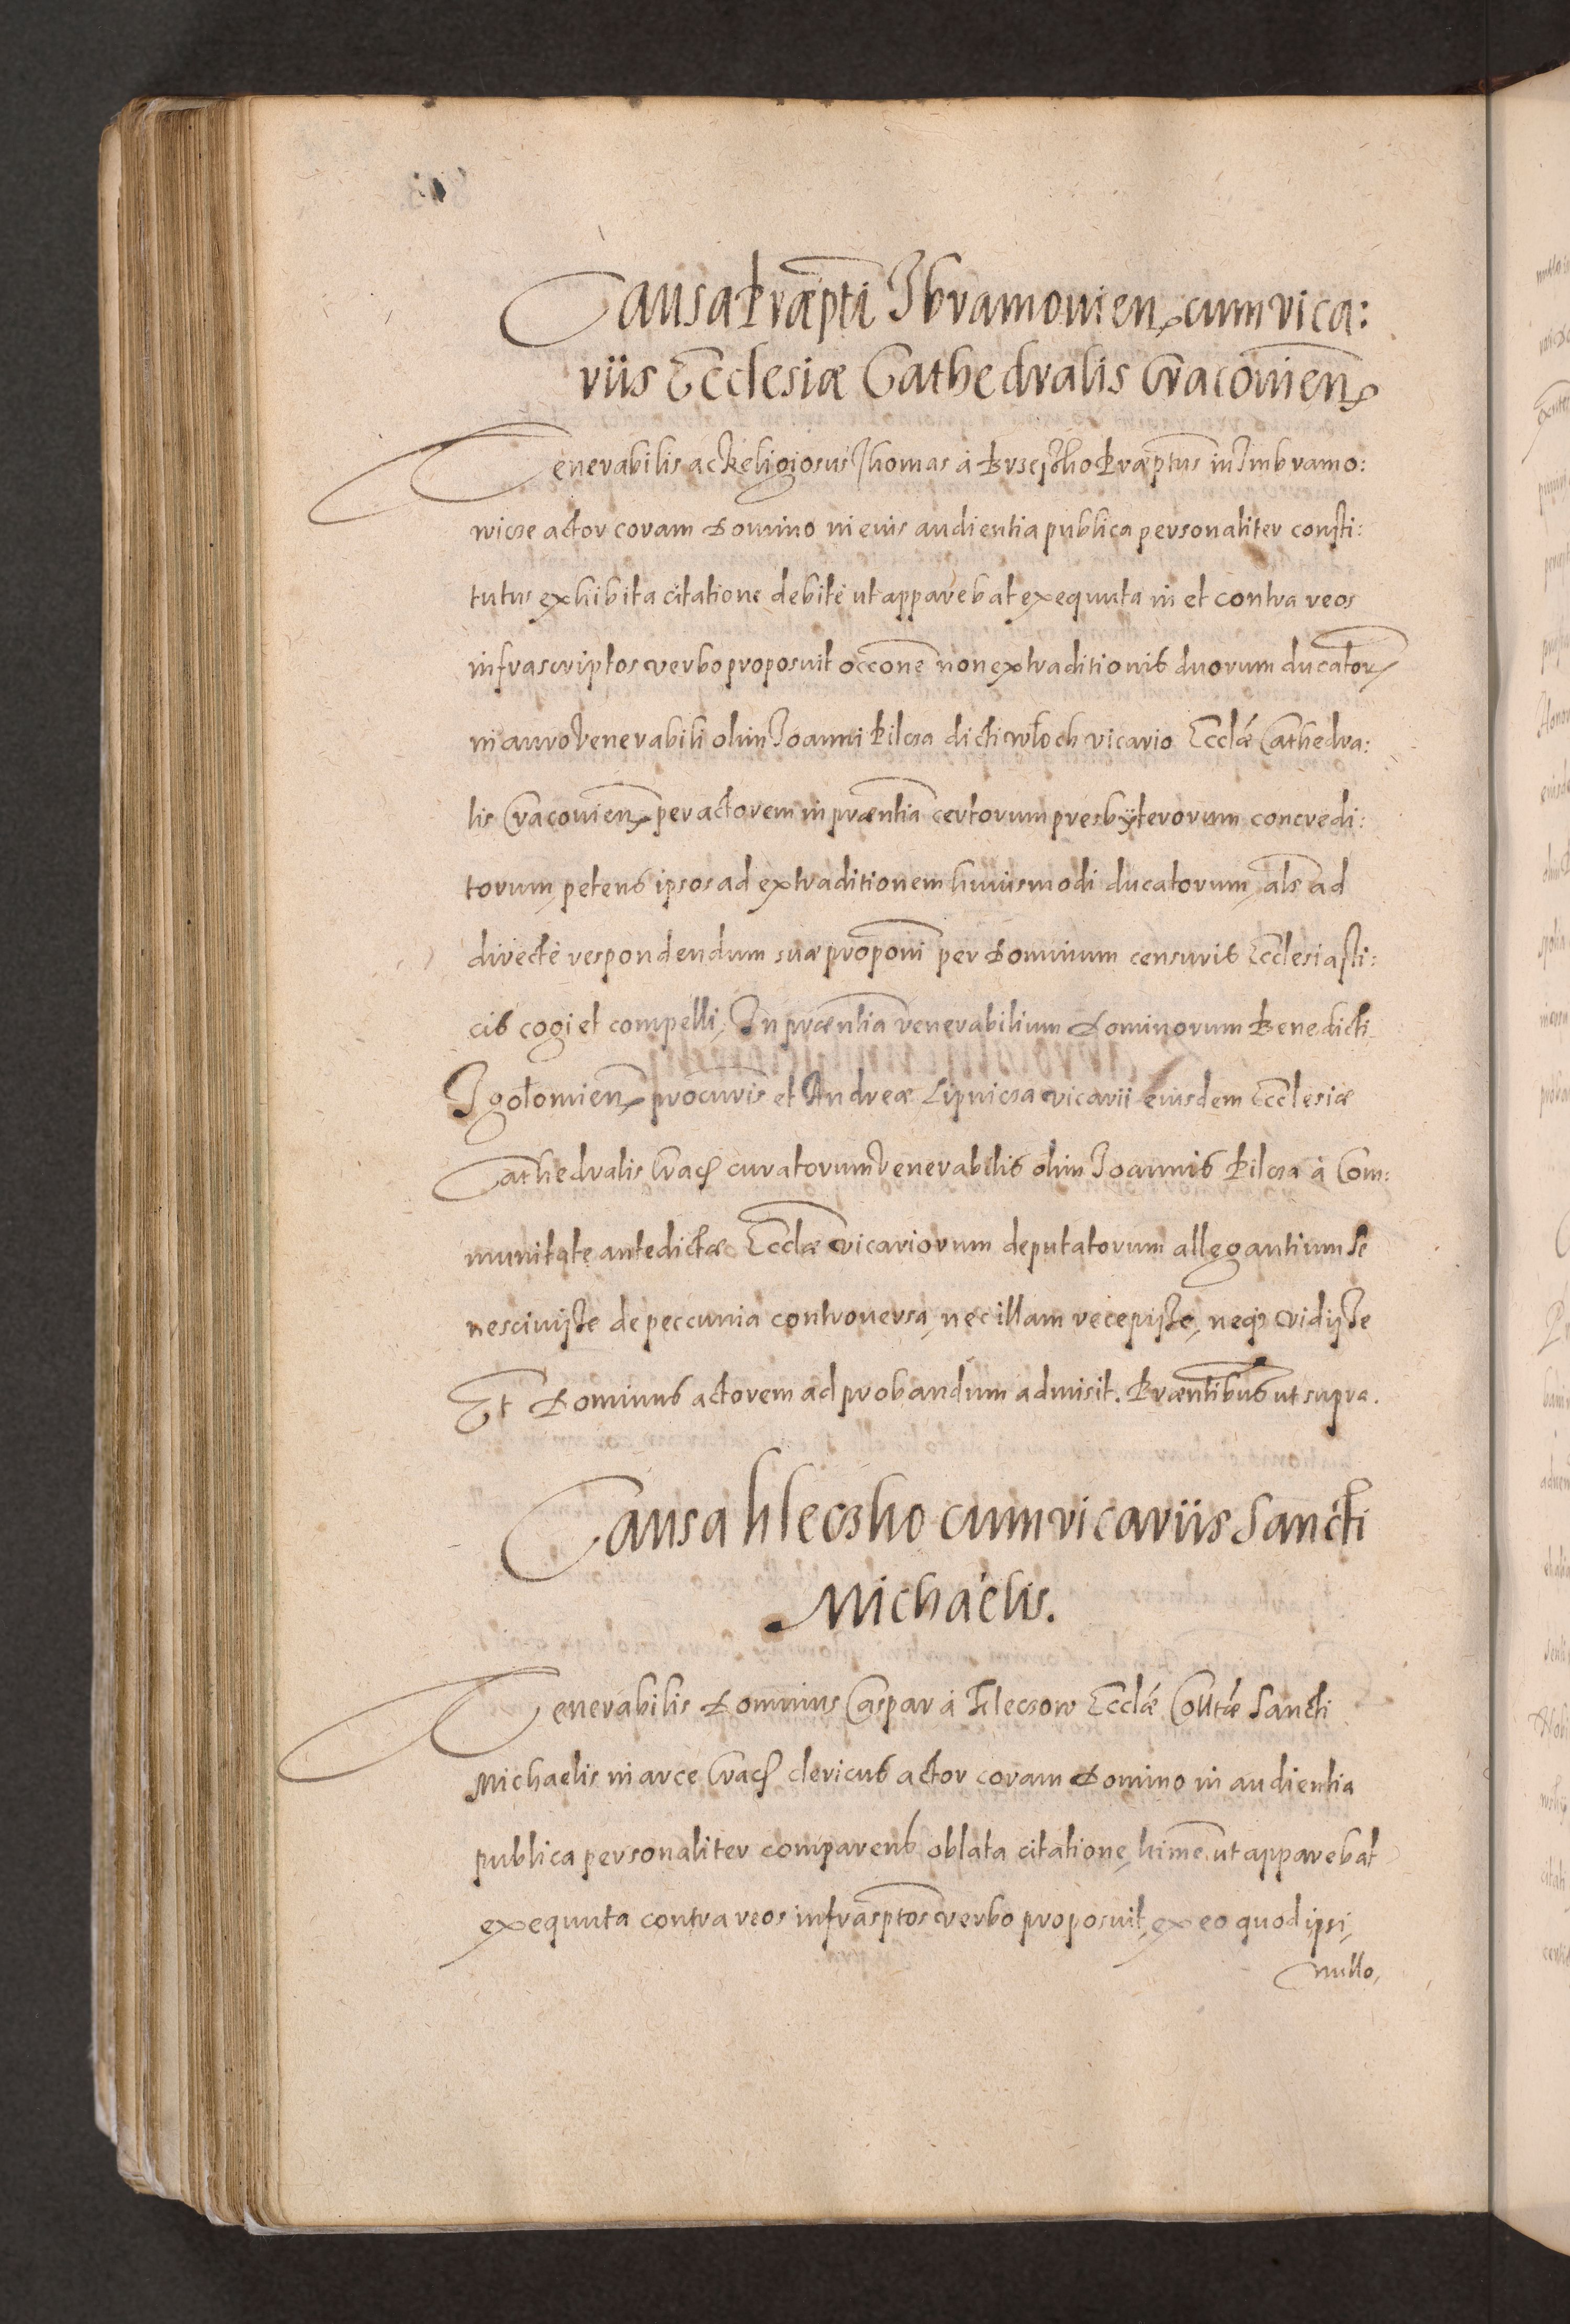 Causa Præpti Ibramouien, cum vica:
riis Ecclesiæ Cathedralis Cracouien,
Venerabilis ac Religiosus Thomas à Præptus in Imbramo:
wicze actor coram Domino in eius audientia publica personaliter consti:
tutus exhibita citatione debitè ut apparebat exequuta in et contra reos
infrascriptos verbo proposuit occone non extraditionis duorum ducator
in auro Venerabili olim Ioanni Pilcza dicti Włoch vicario Ecclæ Cathedra:
lis Cracouien, per actorem in præntia certorum presbÿterorum concredi:
torum, petens ipsos ad extraditionem huiusmodi ducatorum, als ad
directè respondendum suæ proponi per Dominum censuris Ecclesiasti:
cis cogi et compelli, In præntia venerabilium Dominorum Benedicti
Igołomien, procuris et Andreæ Lipnicza vicarii eiusdem Ecclesiæ
Cathedralis Crac curatorum Venerabilis olim Joannis Pilcza à Com:
munitate antedictæ Ecclæ vicariorum deputatorum allegantium se
nesciuisse de peccunia controuersa, nec illam recepisse, neq vidisse
Et Dominus actorem ad probandum admisit. Præntibus ut supra.
Causa kleczko cum vicariis Sancti
Michaelis.
Venerabilis Dominus Caspar à Kleczow Ecclæ Colltæ Sancti
Michaelis in arce Crac clericus actor coram Domino in audientia
publica personaliter comparens oblata citatione, ut apparebat
exequuta contra reos infrasptos verbo proposuit, ex eo quod ipsi,
nullo,